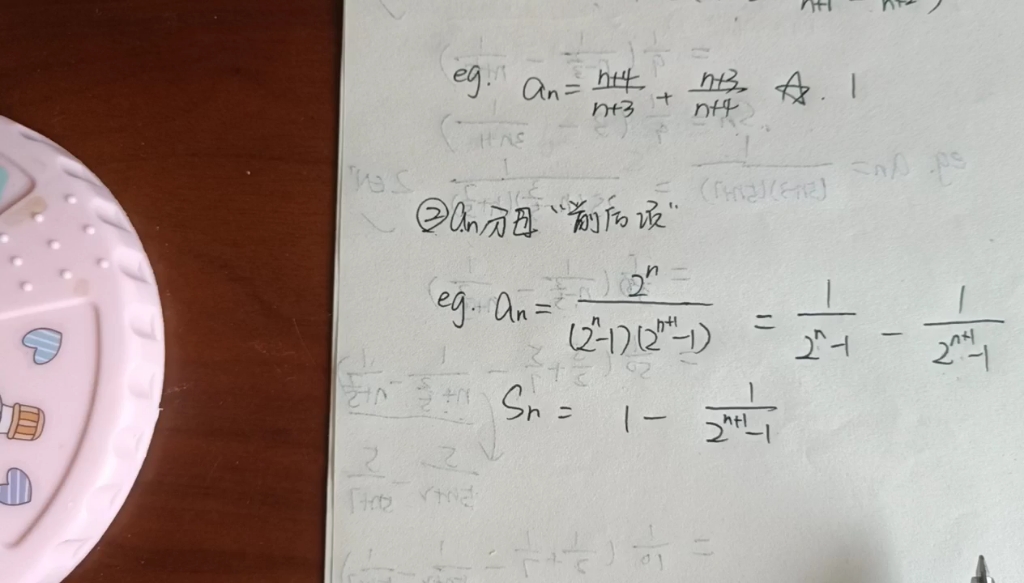 eg. an = \frac{n+4}{n+3} + \frac{n+3}{n+4} ☆. 1
②an分母“前后项”
eg. an = \frac{2^n}{(2^n-1)(2^{n+1}-1)} = \frac{1}{2^n-1} - \frac{1}{2^{n+1}-1}
Sn = 1 - \frac{1}{2^{n+1}-1}